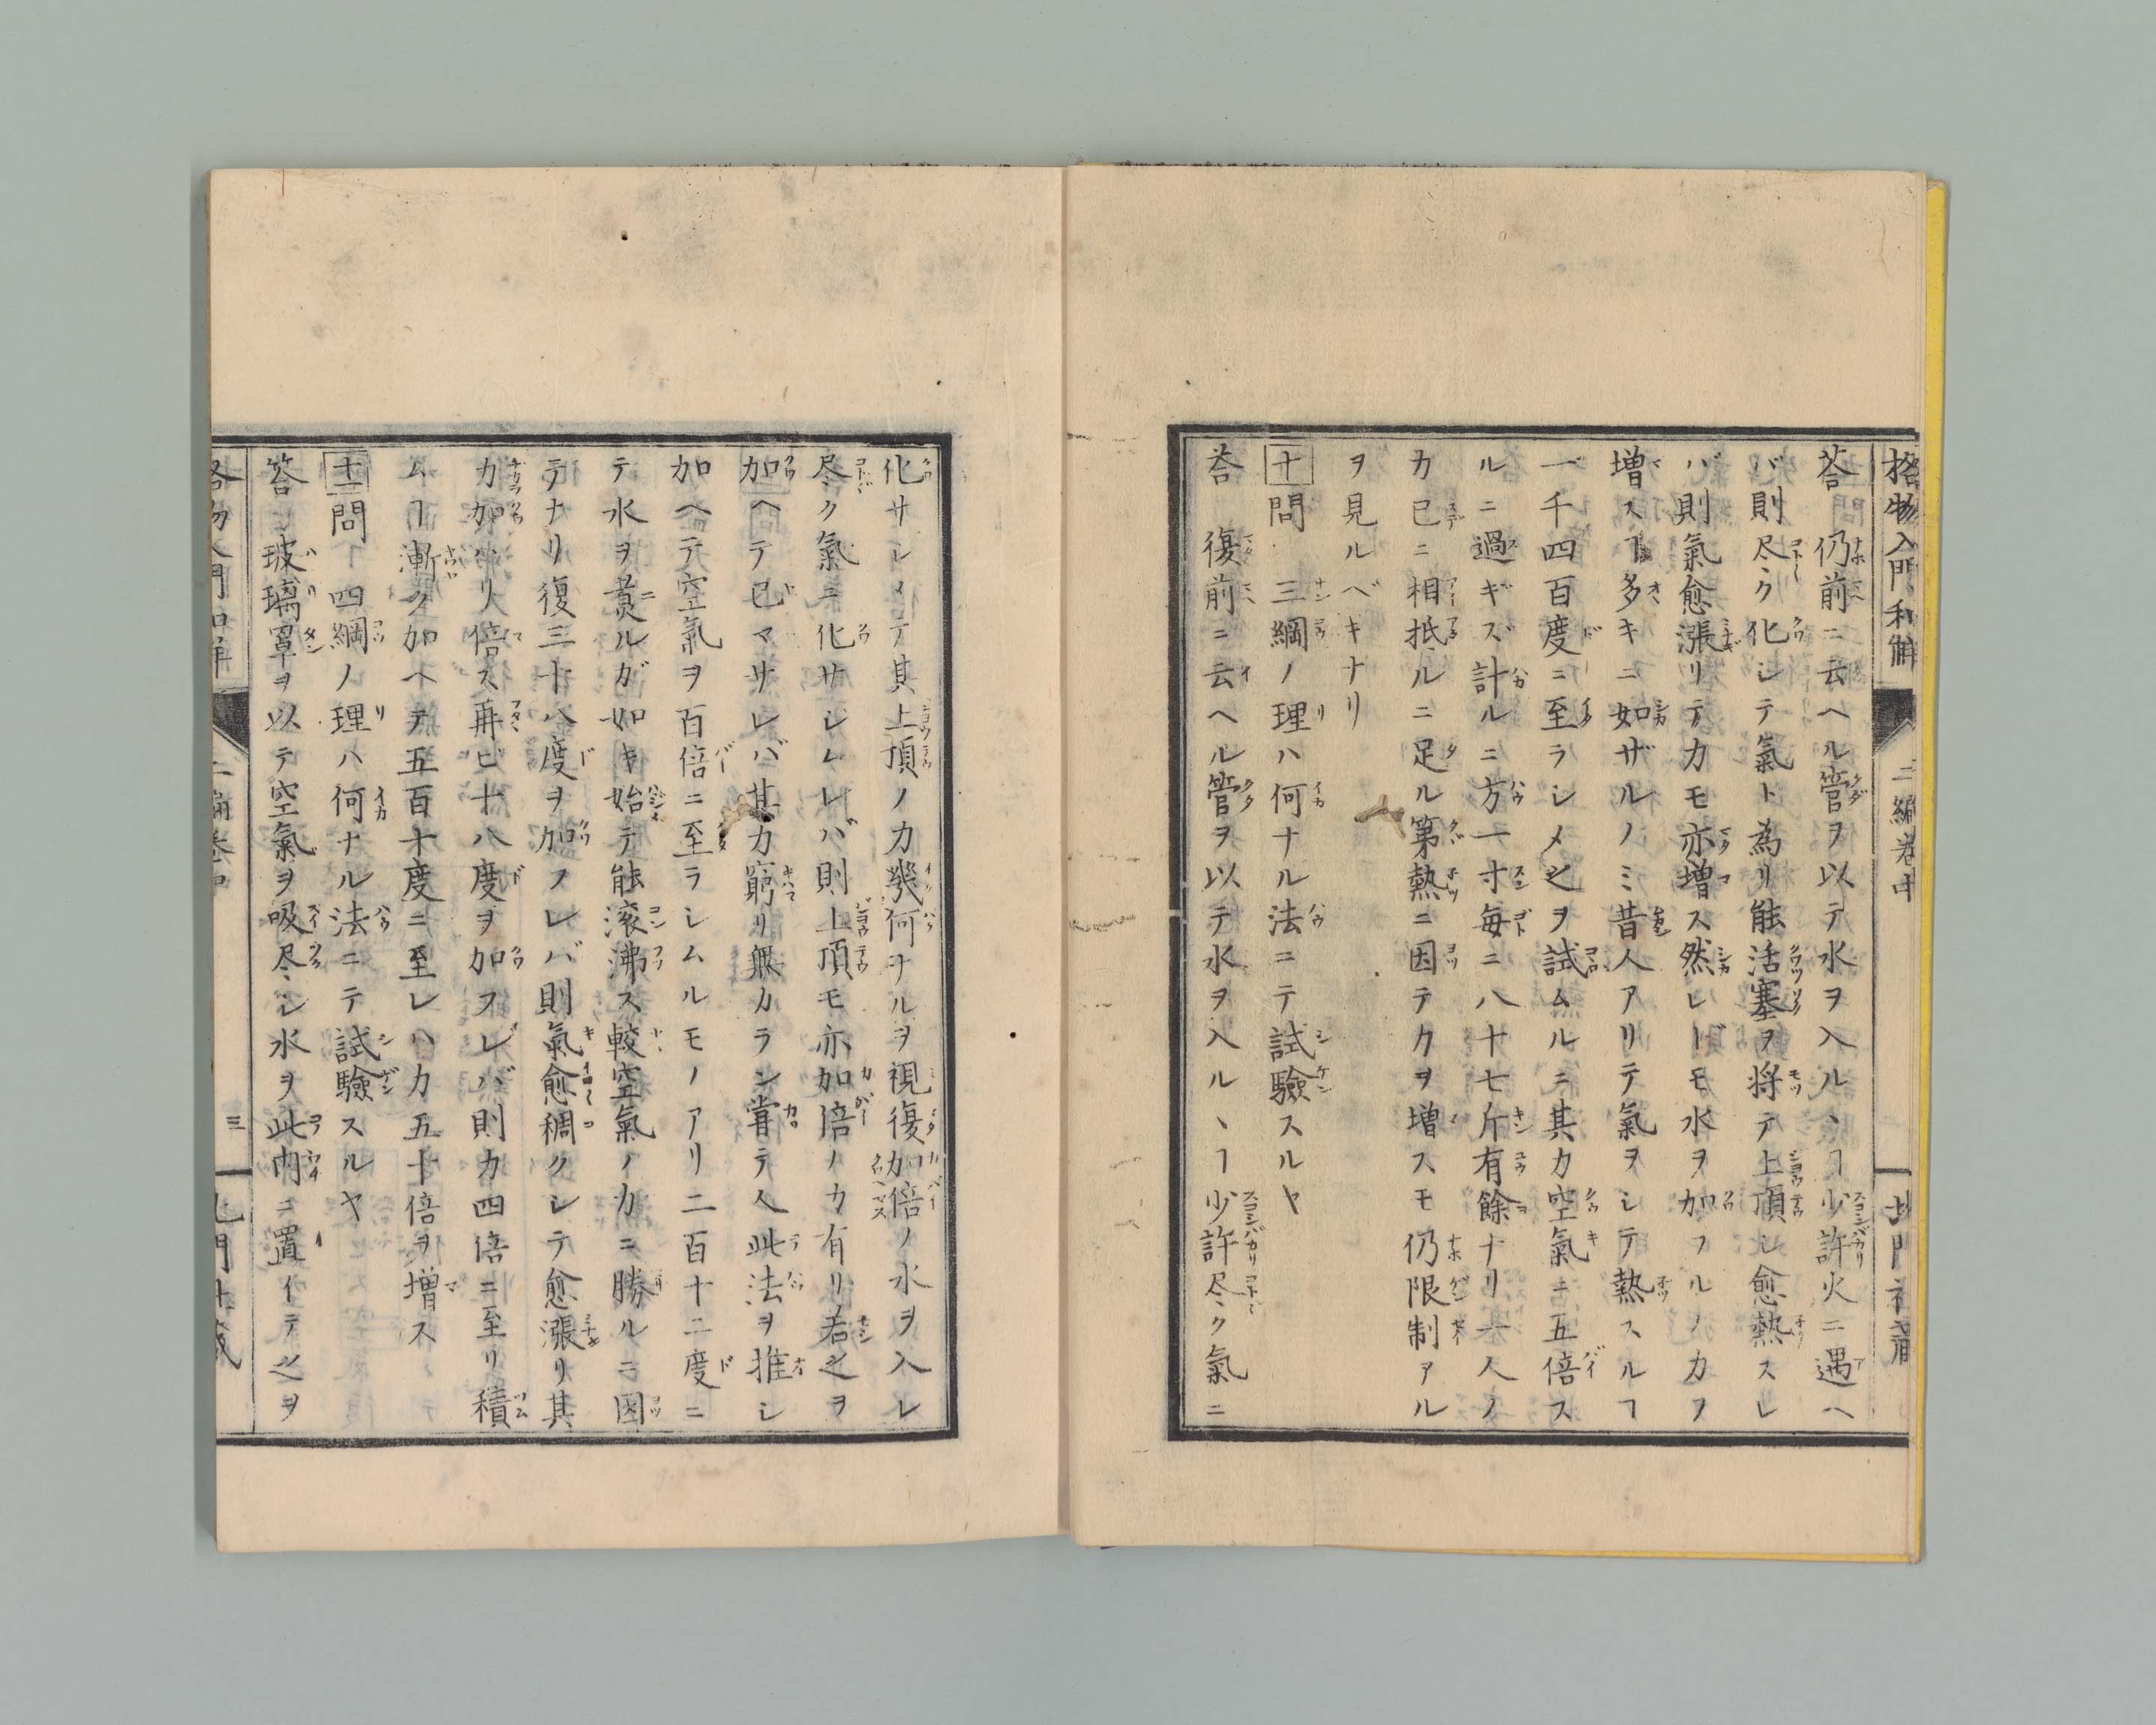 格物入門和解 二編卷中 北門社藏
荅 仍前ニ云ヘル管ヲ以テ水ヲ入ルヽヿ少許火ニ遇ヘ
バ則尽ク化シテ氣ト為リ能活塞ヲ將テ上頂シ愈熱スレ
バ則氣愈漲リテ力モ亦増ス然レドモ水ヲ加フルノ力ヲ
増スヿ多キニ如ザルノミ昔人アリテ氣ヲシテ熱スルヿ
一千四百度ニ至ラシメ之ヲ試ムルニ其力空氣ニ五倍ス
ルニ過ギズ計ルニ方一寸毎ニ八十七斤有餘ナリ一人ノ
力已ニ相抵ルニ足ル第熱ニ因テ力ヲ増スモ仍限制アル
ヲ見ルベキナリ
十問 三綱ノ理ハ何ナル法ニテ試驗スルヤ
荅 復前ニ云ヘル管ヲ以テ水ヲ入ルヽヿ少許尽ク氣ニ
化サシメテ其上頂ノ力幾何ナルヲ視復加倍ノ水ヲ入レ
尽ク氣ニ化サシムレバ則上頂モ亦加倍ノ力有リ若之ヲ
加ヘテ已マサレバ其力窮リ無カラン嘗テ人此法ヲ推シ
加ヘテ空氣ヲ百倍ニ至ラシムルモノアリ二百十二度ニ
テ水ヲ煑ルガ如キ始テ能滚沸ス較空氣ノ力ニ勝ルニ因
テナリ復三十八度ヲ加フレバ則氣愈稠クシテ愈漲リ其
力加リ倍ス再ビ十八度ヲ加フレバ則力四倍ニ至リ積
ムヿ漸ク加ヘテ五百十度ニ至レハ力五十倍ヲ増ス
十一問 四綱ノ理ハ何ナル法ニテ試驗スルヤ
答 玻璃罩ヲ以テ空氣ヲ吸尽シ水ヲ此內ニ置イテ之ヲ
格物入門和解 二編卷中 三 北門社藏